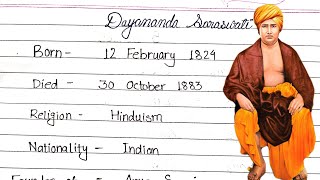 Dayananda Saraswati
Born - 12 February 1824
Died - 30 October 1883
Religion - Hinduism
Nationality - Indian